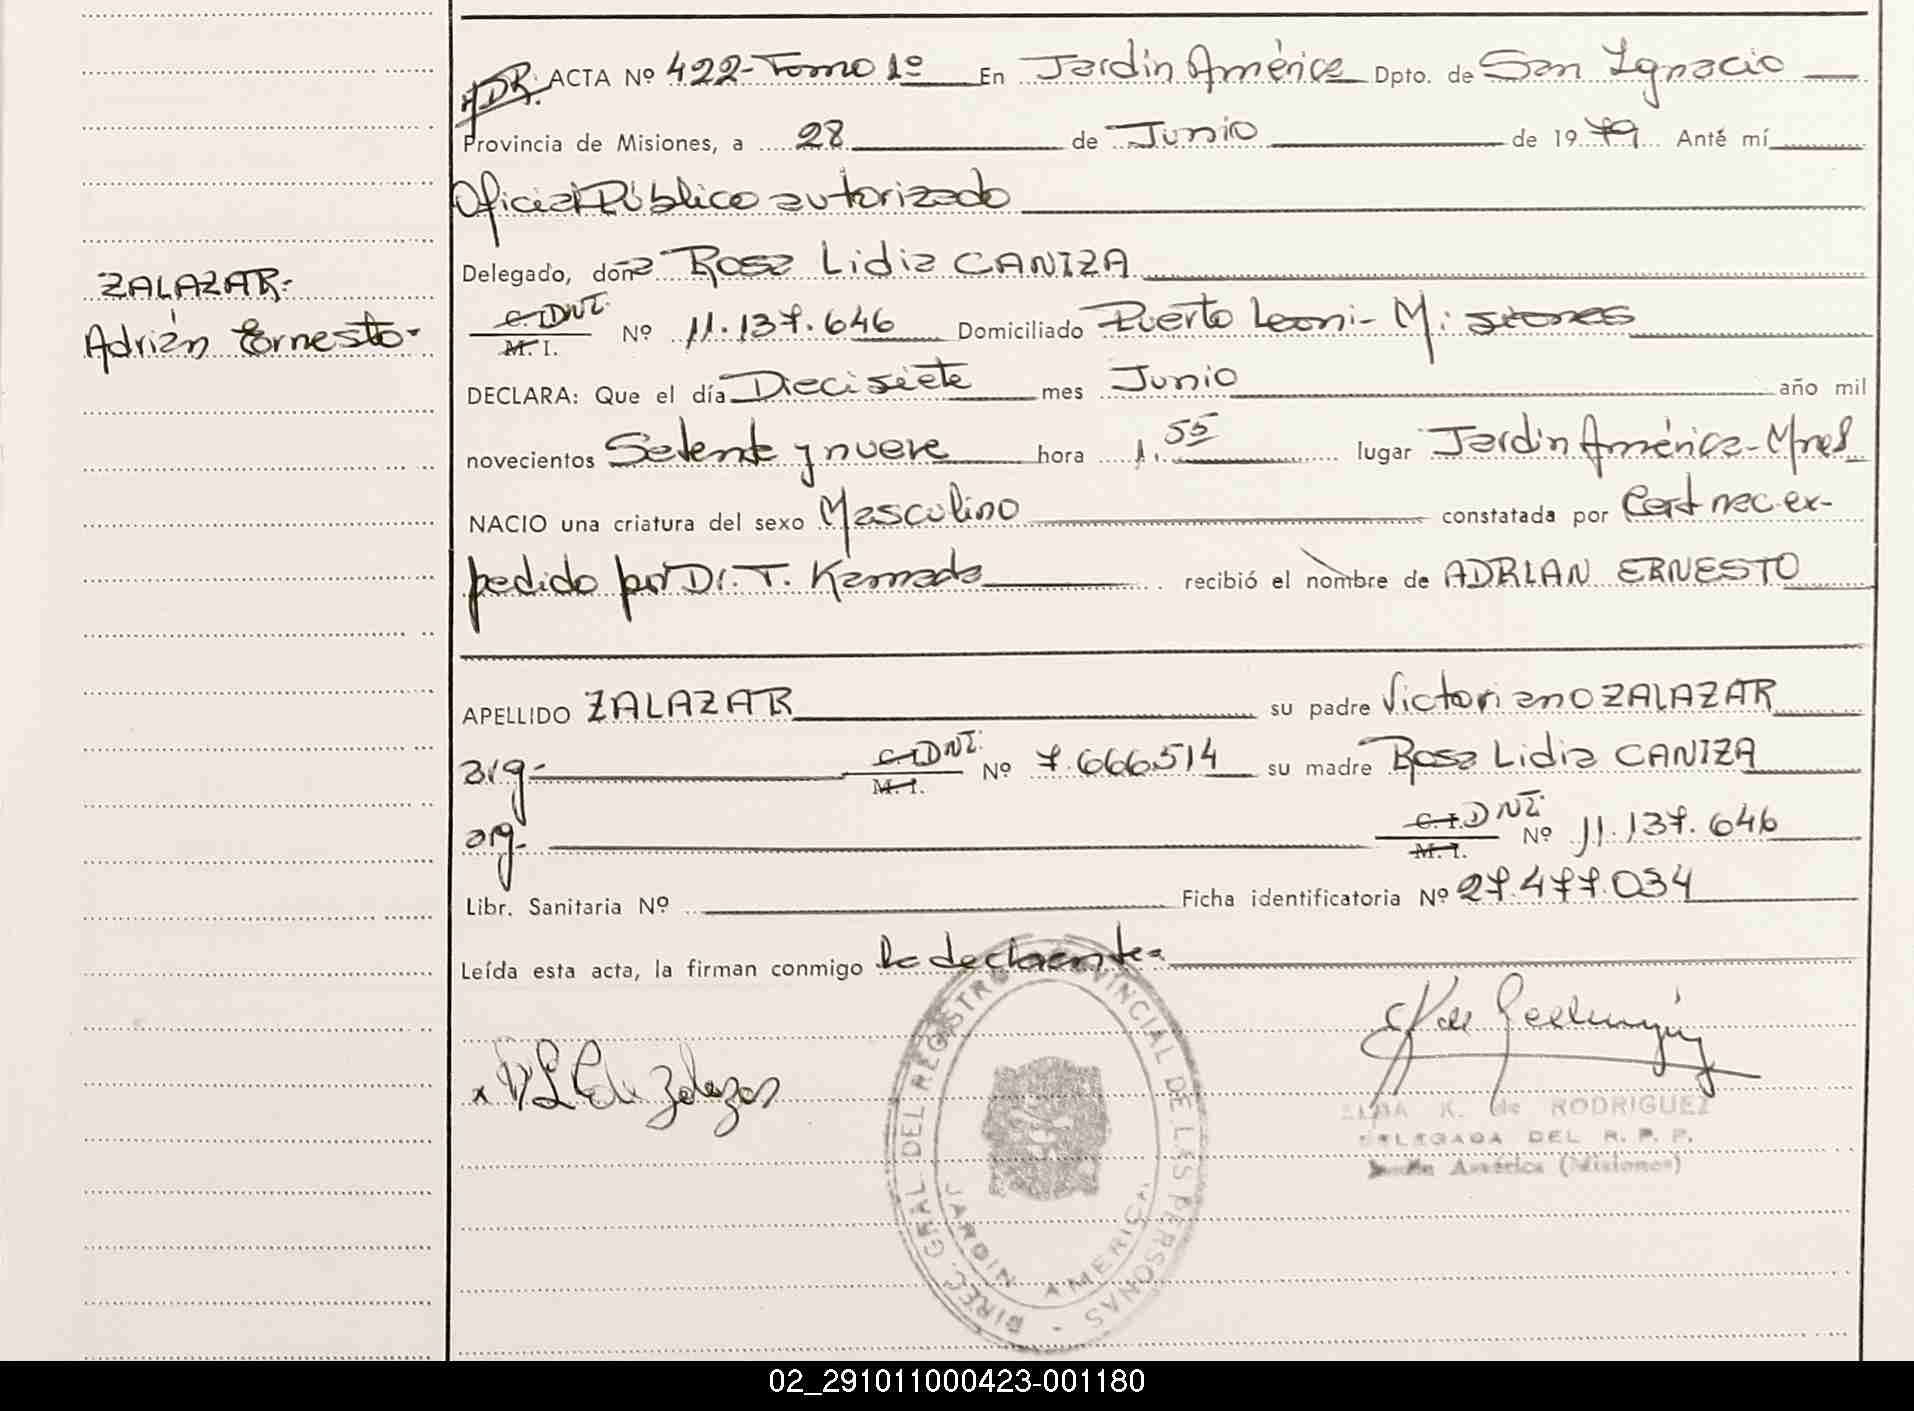 ACTA Nº 422-Tomo 1º En Jardín América Dpto. de San Ignacio
Provincia de Misiones, a 28 de Junio de 1979. Anté mí
Oficial Público autorizado
Delegado, doña Rosa Lidia CANIZA
ZALAZAR-
Adrián Ernesto-
C. I. DNI. M. I. Nº 11.137.646 Domiciliado Puerto Leoni- Misiones
DECLARA: Que el día Diecisiete mes Junio año mil
novecientos Setenta y nueve hora 1.55 lugar Jardín América-Mnes
NACIO una criatura del sexo Masculino constatada por Cert nac ex-
pedido por Dr. T. Kamada recibió el nombre de ADRIAN ERNESTO
APELLIDO ZALAZAR su padre Victoriano ZALAZAR
arg- C. I. DNI. M. I. Nº 7.666.514 su madre Rosa Lidia CANIZA
arg- C. I. DNI. M. I. Nº 11.137.646
Libr. Sanitaria Nº Ficha identificatoria Nº 27.477.034
Leída esta acta, la firman conmigo la declarante-
x R L C de Zalazar
DIREC. GRAL DEL REGISTRO PROVINCIAL DE LAS PERSONAS -
JARDIN AMERICA
ELBA K. de RODRIGUEZ
DELEGADA DEL R. P. P.
Jardín América (Misiones)
02_291011000423-001180